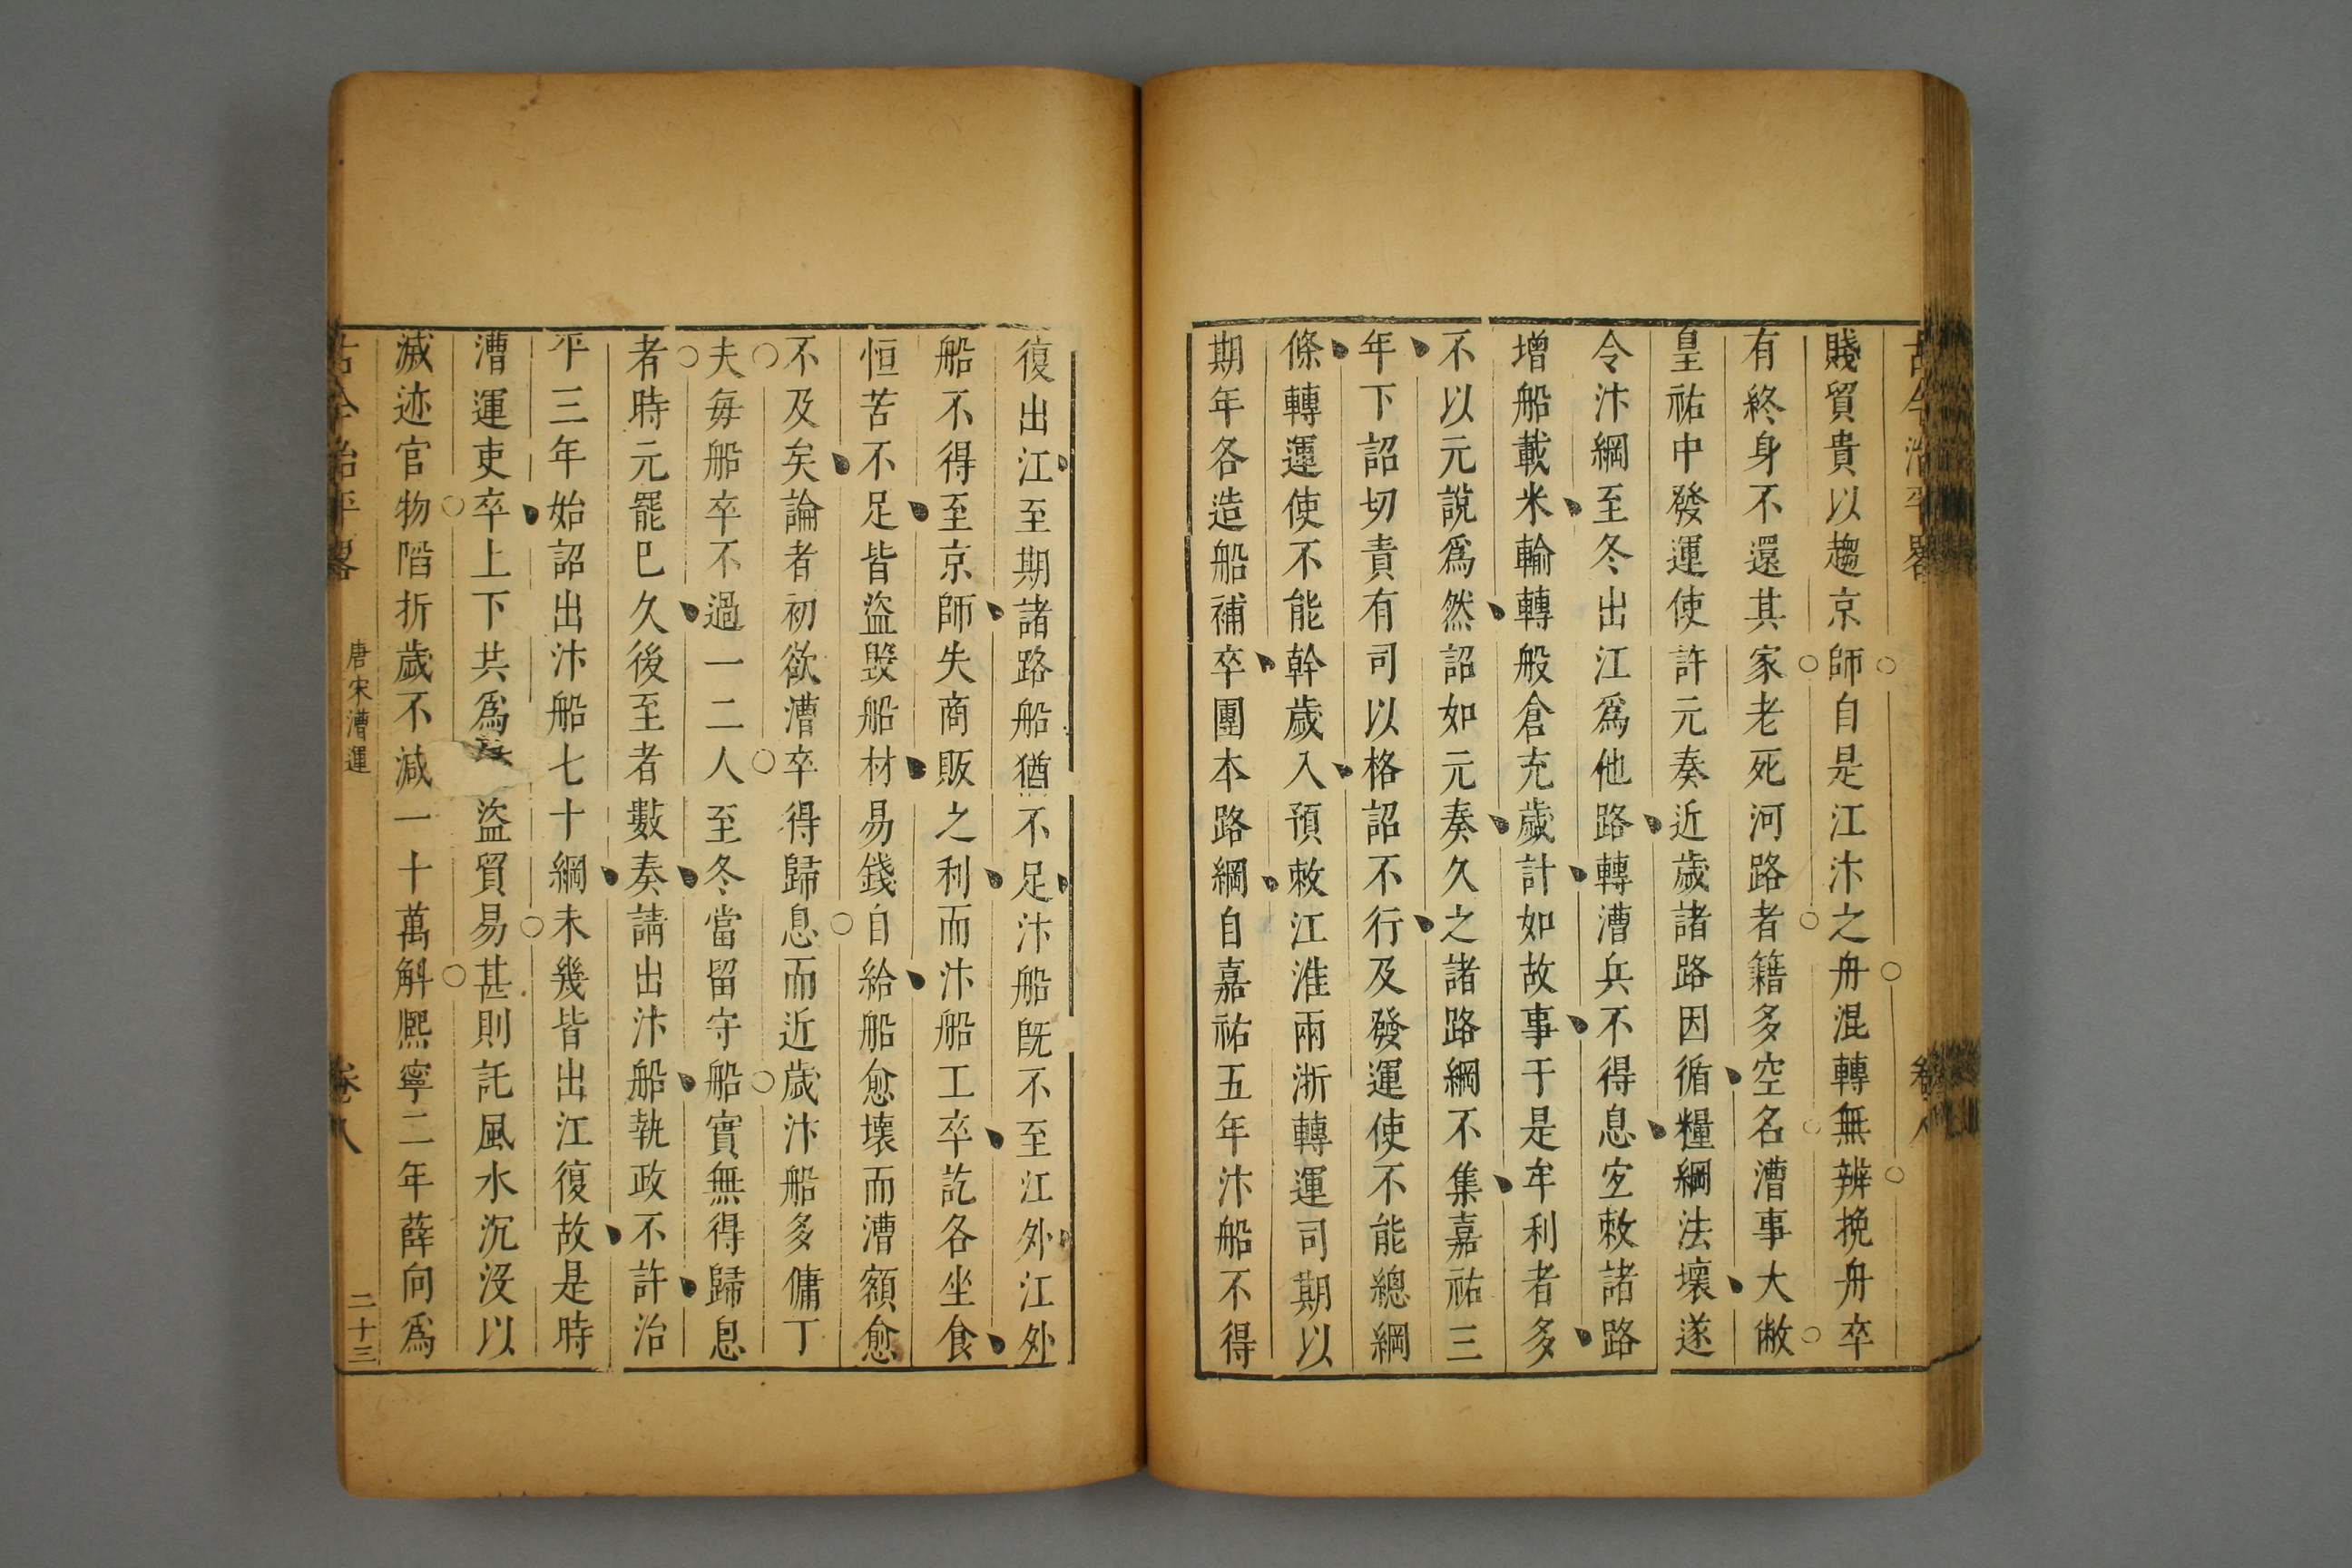 古今治平畧
卷八
賤貿貴以趨京師自是江汴之舟混轉無辨挽舟卒
有終身不還其家老死河路者籍多空名漕事大敝
皇祐中發運使許元奏近歲諸路因循糧綱法壞遂
令汴綱至冬出江爲他路轉漕兵不得息宜敕諸路
增船載米輸轉般倉充歲計如故事于是牟利者多
不以元說爲然詔如元奏久之諸路綱不集嘉祐三
年下詔切責有司以格詔不行及發運使不能總綱
條轉運使不能幹歲入預敕江淮兩浙轉運司期以
期年各造船補卒團本路綱自嘉祐五年汴船不得
復出江至期諸路船猶不足汴船旣不至江外江外
船不得至京師失商販之利而汴船工卒訖各坐食
恒苦不足皆盜毀船材易錢自給船愈壞而漕額愈
不及矣論者初欲漕卒得歸息而近歲汴船多傭丁
夫每船卒不過一二人至冬當留守船實無得歸息
者時元罷巳久後至者數奏請出汴船執政不許治
平三年始詔出汴船七十綱未幾皆出江復故是時
漕運吏卒上下共爲盜貿易甚則託風水沉沒以
滅迹官物陷折歲不減一十萬斛熈寧二年薛向爲
古今治平畧
唐宋漕運
卷八
二十三